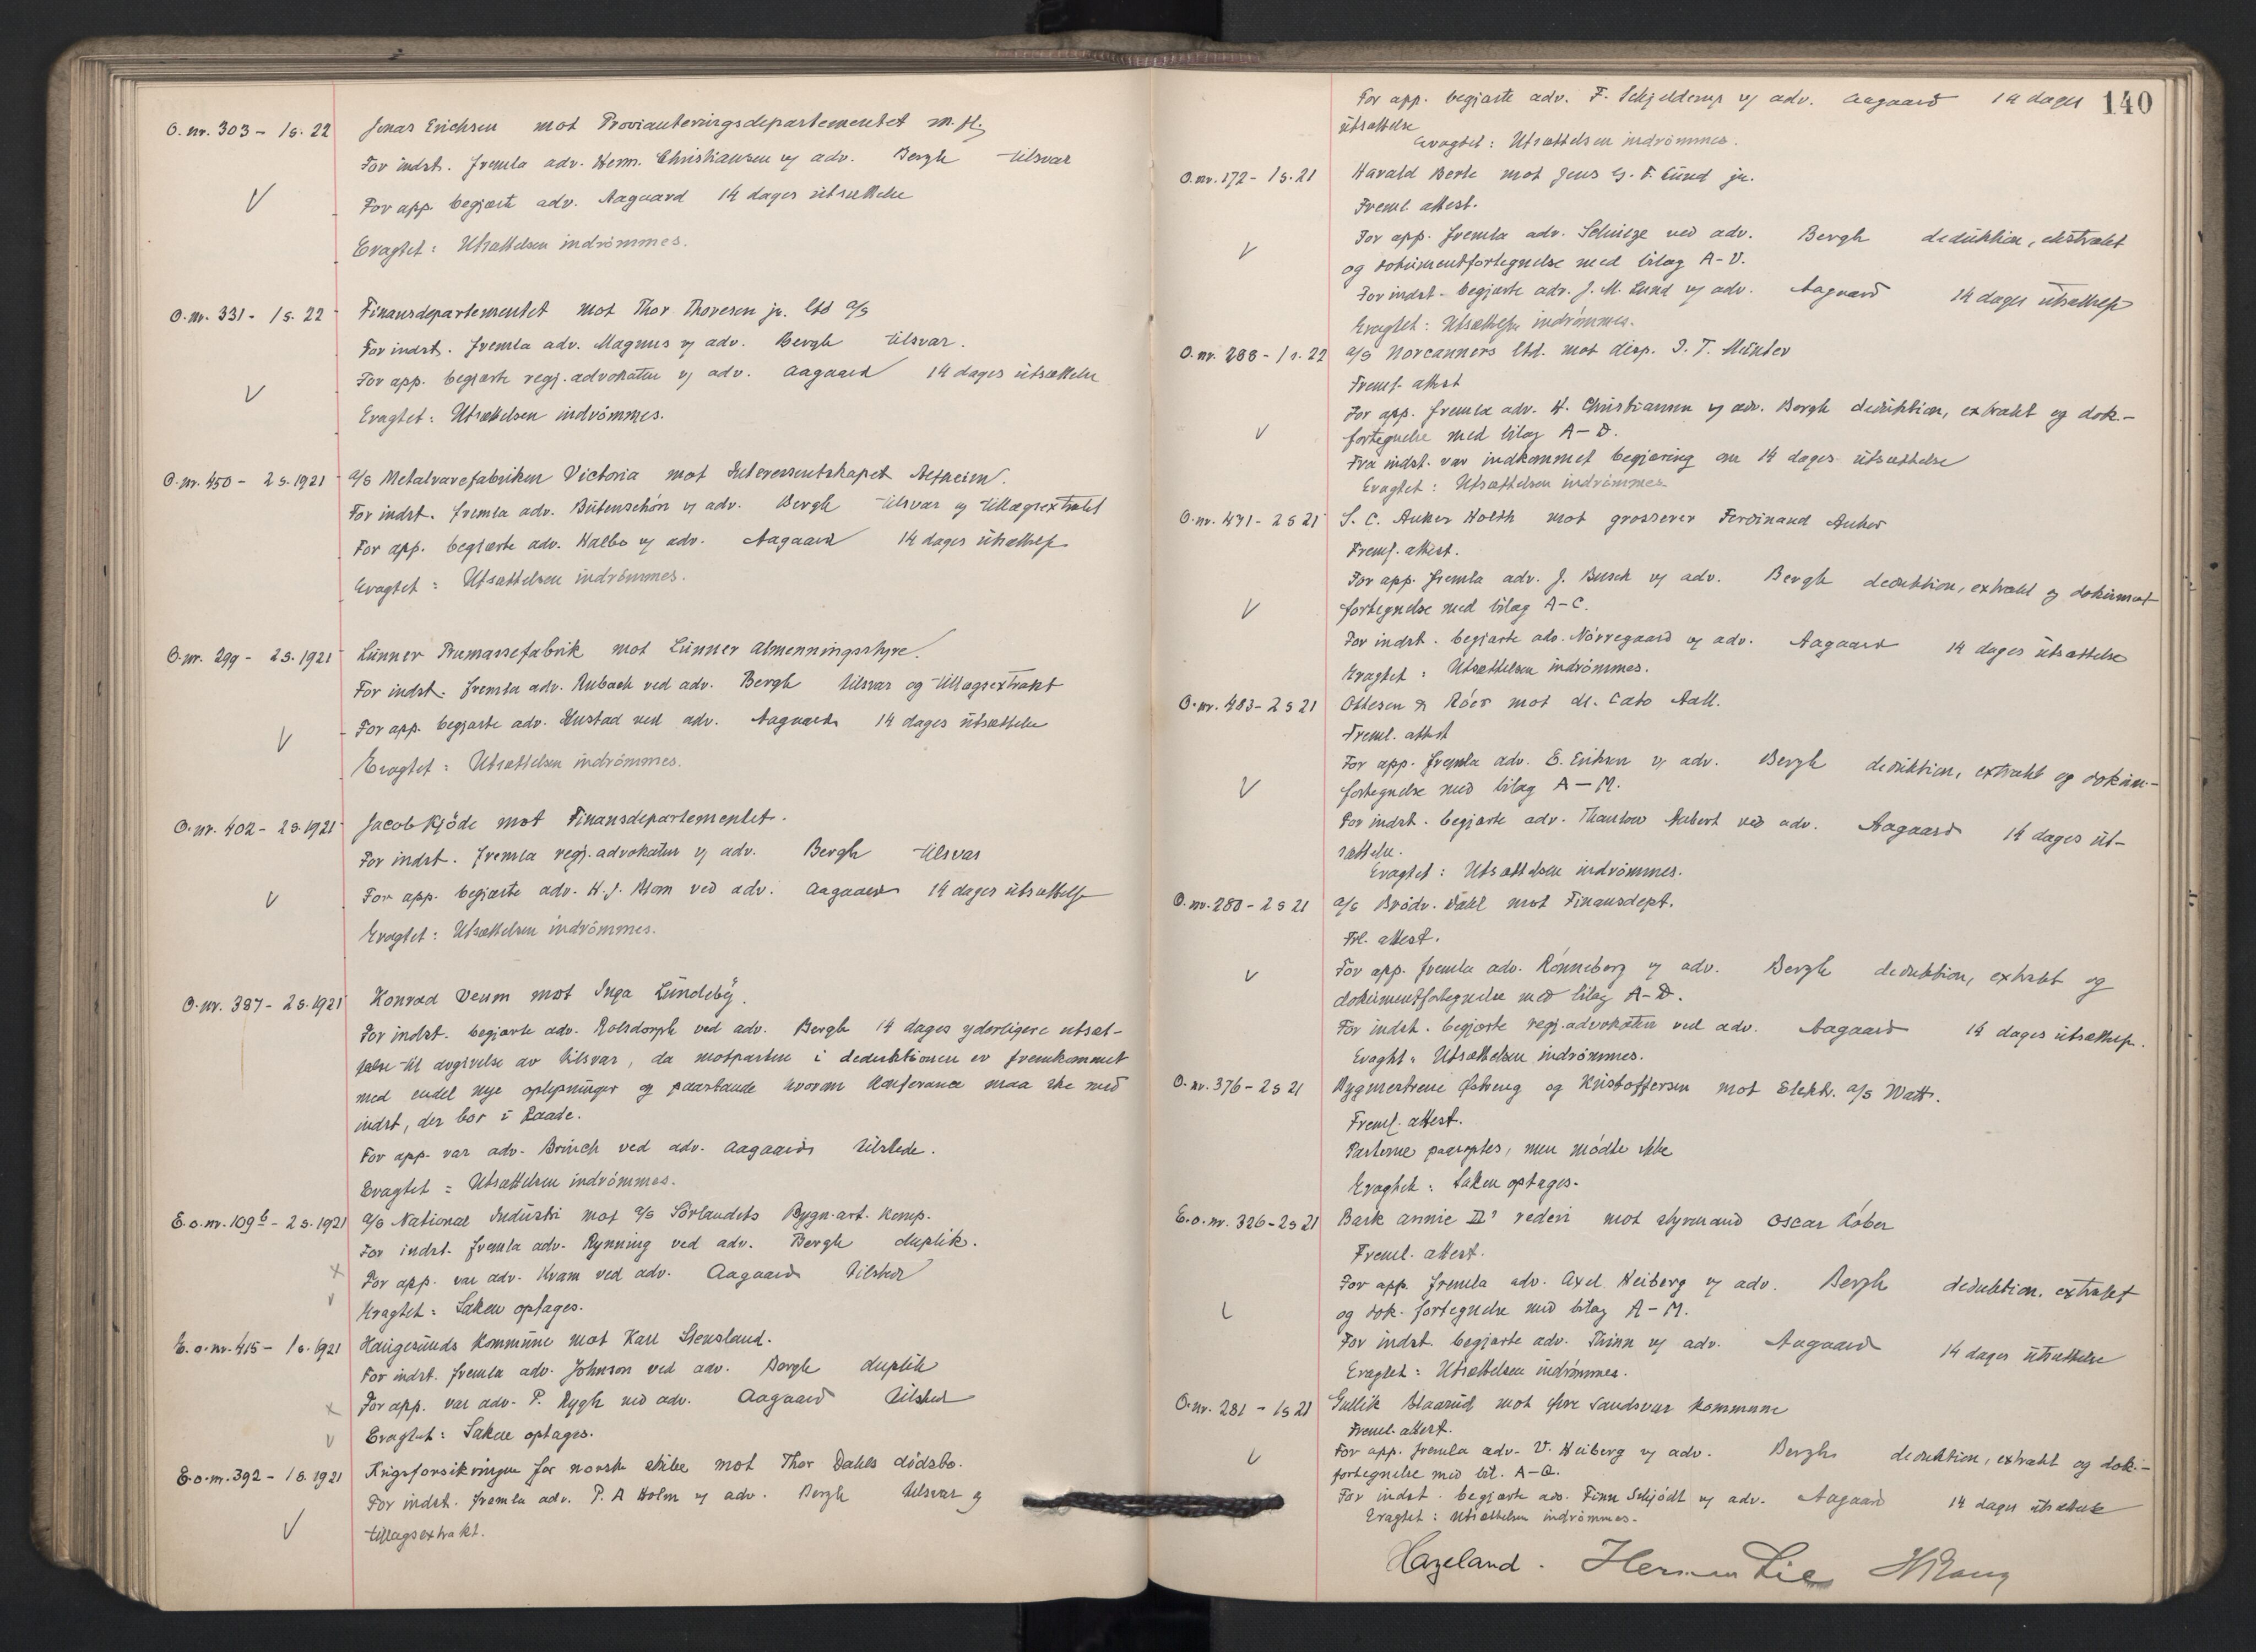 O. nr. 303 - 1 s. 22 Jonas Erichsen mot Provianteringsdepartementet m. fl.
For indst. fremla adv. Herm. Christiansen v/ adv. Bergh tilsvar
For app. begjærte adv. Aagaard 14 dages utsættelse
Eragtet: Utsættelsen indrömmes.
O. nr. 331 - 1 s. 22 Finansdepartementet mot Thor Thoresen jr. Ltd A/S
For indst. fremla adv. Magnus v/ adv. Bergh tilsvar.
For app. begjærte regj.advokaten v/ adv. Aagaard 14 dages utsættelse
Eragtet: Utsættelsen indrömmes.
O. nr. 450 - 2 s. 1921 A/S Metalvarefabriken Victoria mot Interessentskapet
For indst. fremla adv. Butenschön v/ adv. Bergh tilsvar og tillægsextrakt
For app. begjærte adv. v/ adv. Aagaard 14 dages utsættelse
Eragtet: Utsættelsen indrömmes.
O. nr. 299 - 2 s. 1921 Lunner Træmassefabrik mot Lunner Almenningsstyre.
For indst. fremla adv. Rubach ved adv. Bergh tilsvar og tillægsextrakt
For app. begjærte adv. Hustad ved adv. Aagaard 14 dages utsættelse
Eragtet: Utsættelsen indrömmes.
O. nr. 402 - 2 s. 1921 Jacob Kjöde mot Finansdepartementet.
For indst. fremla regj.advokaten v/ adv. Bergh tilsvar
For app. begjærte adv. H. J. Blom ved adv. Aagaard 14 dages utsættelse
Eragtet: Utsættelsen indrömmes.
O. nr. 387 - 2 s. 1921 Konrad Veum mot Inga Lundeby.
For indst. begjærte adv. Rolsdorph ved adv. Bergh 14 dages yderligere utsæt-
telse til avgivelse av tilsvar, da motparten i deduktionen er fremkommet
med endel nye oplysninger og paastande hvorom konferance maa ske med
indst, der bor i Raade.
For app. var adv. Brinch ved adv. Aagaard tilstede.
Eragtet: Utsættelsen indrömmes.
E. o. nr. 109 b - 2 s. 1921 A/S National Industri mot A/S Sörlandets Bygn.art. komp.
For indst. fremla adv. Rynning ved adv. Bergh duplik.
For app. var adv. Kvam ved adv. Aagaard tilstede
Eragtet: Saken optages.
E. o. nr. 415 - 1 s. 1921 Haugesunds kommune mot Karl Stensland.
For indst. fremla adv. Johnson ved adv. Bergh duplik
For app. var adv. P. Rygh ved adv. Aagaard tilstede
Eragtet: Saken optages.
E. o. nr. 392 - 1 s. 1921 Krigsforsikringen for norske skibe mot Thor Dahls dödsbo.
For indst. fremla adv. P. A. Holm v/ adv. Bergh tilsvar og
tillægsextrakt.
140
For app. begjærte adv. F. Schjelderup v/ adv. Aagaard 14 dages
utsættelse
Eragtet: Utsættelsen indrömmes.
O. nr. 172 - 1 s. 21 Harald Berle mot Jens G. F. Lund jr.
Freml. attest.
For app. fremla adv. ved adv. Bergh deduktion, ekstrakt
og dokumentfortegnelse med bilag A-V.
For indst. begjærte adv. J. M. Lund v/ adv. Aagaard 14 dages utsættelse
Eragtet: Utsættelsen indrömmes.
O. nr. 288 - 1 s. 22 A/S Norcanners Ltd. mot disp. I. T. Münter
Freml. attest
For app. fremla adv. H. Christiansen v/ adv. Bergh deduktion, extrakt og dok.-
fortegnelse med bilag A-D.
Fra indst. var indkommet begjæring om 14 dages utsættelse
Eragtet: Utsættelsen indrömmes.
O. nr. 471 - 2 s 21 S. C. Anker Holth mot grosserer Ferdinand Anker
Freml. attest.
For app. fremla adv. J. Busch v/ adv. Bergh deduktion, extrakt og dokument
fortegnelse med bilag A-C.
For indst. begjærte adv. Nörregaard v/ adv. Aagaard 14 dages utsættelse
Eragtet: Utsættelsen indrömmes.
O. nr. 483 - 2 s 21 Ottesen & Röer mot dr. Cato Aall.
Freml. attest
For app. fremla adv. E. Eriksen v/ adv. Bergh deduktion, extrakt og dokum.-
fortegnelse med bilag A-M.
For indst. begjærte adv. Thaulow Aubert ved adv. Aagaard 14 dages ut-
sættelse.
Eragtet: Utsættelsen indrömmes.
O. nr. 280 - 2 s 21 A/S Brödr. Dahl mot Finansdept.
Frl. attest.
For app. fremla adv. Rönneberg v/ adv. Bergh deduktion, extrakt og
dokumentfortegnelse med bilag A-D.
For indst. begjærte regj.advokaten ved adv. Aagaard 14 dages utsættelse.
Eragtet: Utsættelsen indrömmes.
O. nr. 376 - 2 s 21 Bygmestrene Østreng og Kristoffersen mot Elektr. A/S Watt.
Freml. attest.
Parterne paaroptes, men mödte ikke
Eragtet: Saken optages.
E. o. nr. 326 - 2 s 21 Bark Annie II's rederi mot styrmand Oscar Röber
Freml. attest.
For app. fremla adv. Axel Heiberg v/ adv. Bergh deduktion, extrakt
og dok. fortegnelse med bilag A-M.
For indst. begjærte adv. Thinn v/ adv. Aagaard 14 dages utsættelse
Eragtet: Utsættelsen indrömmes.
O. nr. 281 - 1 s 21 Gullik Blaarud mot Øvre Sandsvær kommune
Freml. attest.
For app. fremla adv. V. Heiberg v/ adv. Bergh deduktion, extrakt og dok.-
fortegnelse med bil. A-Q.
For indst. begjærte adv. Finn Schjödt v/ adv. Aagaard 14 dages utsættelse
Eragtet: Utsættelsen indrömmes.
Hazeland. Herman Lie